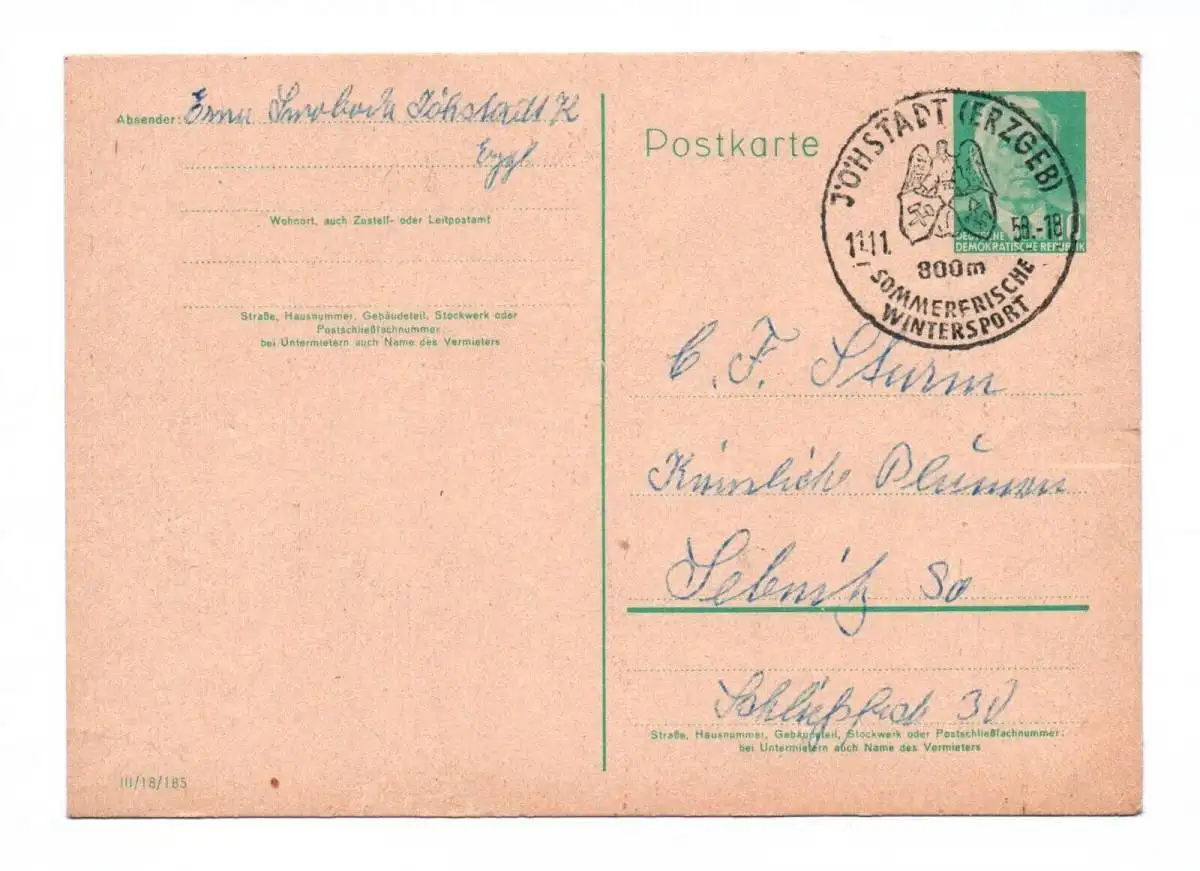 Absender: Erna Swoboda Jöhstadt K
Erzgb
Wohnort, auch Zustell- oder Leitpostamt
Straße, Hausnummer, Gebäudeteil, Stockwerk oder
Postschließfachnummer
bei Untermietern auch Name des Vermieters
III/18/185
Postkarte
JÖHSTADT (ERZGEB)
11.11. 58.-18
800m
SOMMERFRISCHE
WINTERSPORT
DEUTSCHE
DEMOKRATISCHE REPUBLIK
C. F. Sturm
Künsliche Blumen
Sebnitz Sa
30
Straße, Hausnummer, Gebäudeteil, Stockwerk oder Postschließfachnummer;
bei Untermietern auch Name des Vermieters